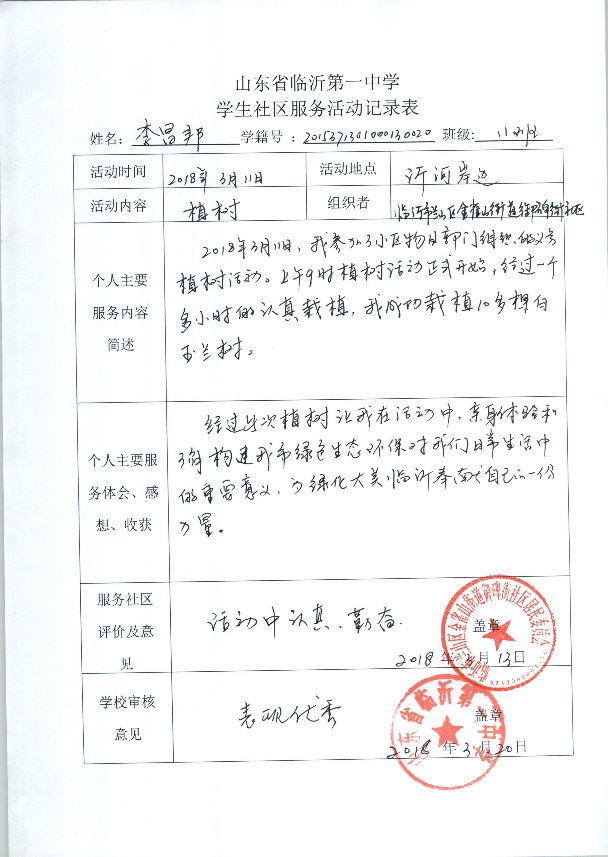 山东省临沂第一中学
学生社区服务活动记录表
姓名：李昌邦 学籍号：2015371301000130020 班级：
活动时间 2018年3月11日 活动地点 沂河岸边
活动内容 植树 组织者
个人主要服务内容简述
2018年3月11日，我参加了小区物业部门组织的义务
植树活动。上午9时植树活动正式开始，经过一个
多小时的认真栽植，我成功栽植10多棵白
玉兰树。
个人主要服务体会、感想、收获
经过此次植树让我在活动中，亲身体验和
了解构建我市绿色生态环保对我们日常生活中
的重要意义，为绿化大美临沂奉献出自己的一份
力量。
服务社区评价及意见
活动中认真、勤奋.
盖章
2018年3月13日
学校审核意见
表现优秀
盖章
2018年3月20日
山东省临沂第一中学